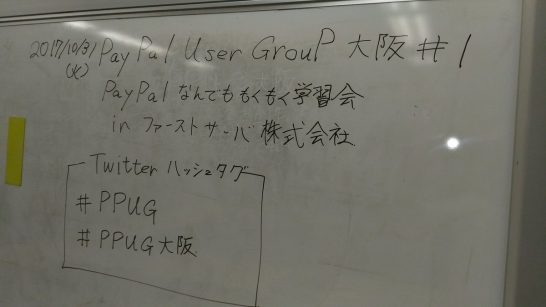 2017/10/31 PayPal User GrouP 大阪 #1
(火)
PayPal なんでももくもく学習会
in ファーストサーバ 株式会社
Twitter ハッシュタグ
# PPUG
# PPUG 大阪